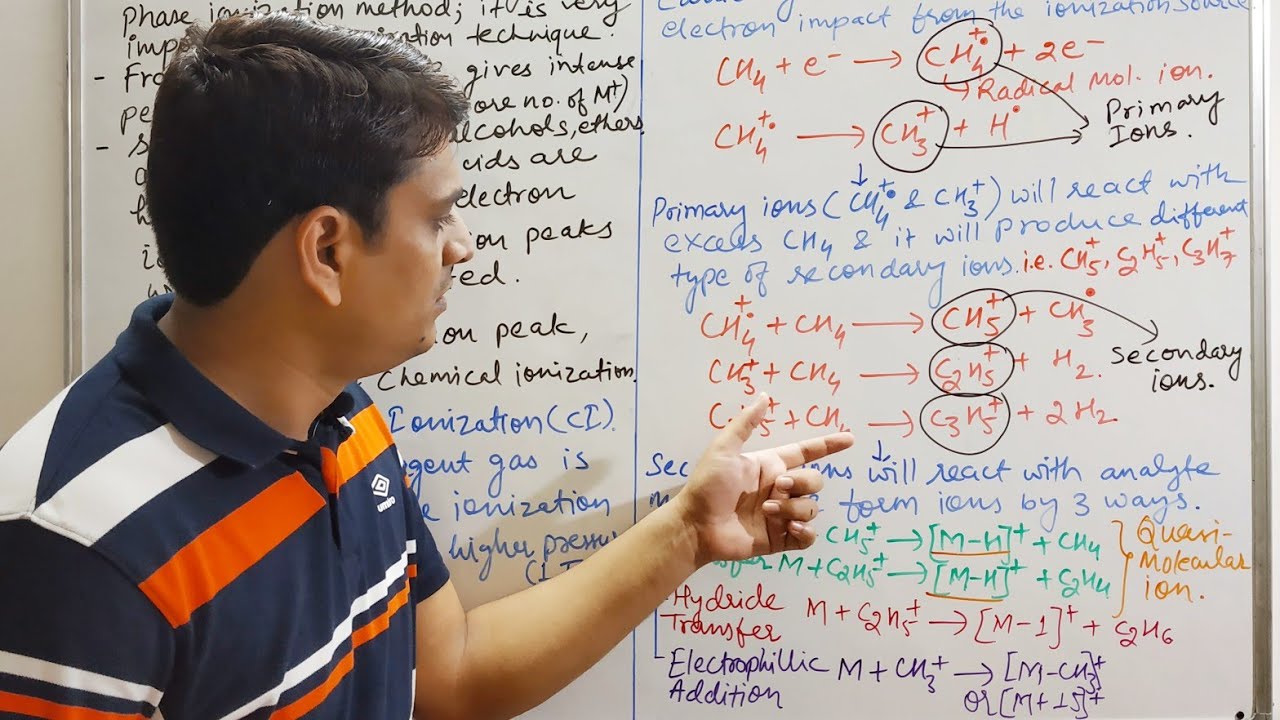 phase ionization method; it is very
technique.
gives intense
no. of M+)
alcohols, ethers
are
electron
peaks
peak,
Chemical ionization.
Ionization (CI).
gas is
ionization
higher
electron impact from the ionization source
CH4 + e- → CH4+• + 2e-
Radical Mol. ion.
CH4+• → CH3+ + H•
Primary
Ions.
Primary ions (CH4+• & CH3+) will react with
excess CH4 & it will produce different
type of secondary ions. i.e. CH5+, C2H5+, C3H7+
CH4+• + CH4 → CH5+ + CH3•
CH3+ + CH4 → C2H5+ + H2.
+ CH4 → C3H5+ + 2H2.
Secondary
ions.
will react with analyte
form ions by 3 ways.
CH5+ → [M-H]+ + CH4
M + C2H5+ → [M-H]+ + C2H4
Quasi-
Molecular
ion.
Hydride
Transfer
M + C2H5+ → [M-1]+ + C2H6
Electrophillic
Addition
M + CH3+ → [M-CH3]+
or [M+15]+
umbro